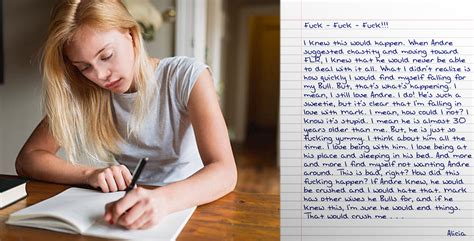 Fuck - Fuck - Fuck!!!
I knew this would happen. When Andre
suggested chastity and moving toward
FLR, I knew that he would never be able
to deal with it all. What I didn't realize is
how quickly I would find myself falling for
my Bull. But, that's what's happening. I
mean, I still love Andre. I do! He's such a
sweetie, but it's clear that I'm falling in
love with Mark. I mean, how could I not? I
know it's stupid. I mean he is almost 30
years older than me. But, he is just so
fucking yummy. I think about him all the
time. I love being with him. I love being at
his place and sleeping in his bed. And more
and more I find myself not wanting Andre
around. This is bad, right? How did this
fucking happen? If Andre knew, he would
be crushed and I would hate that. Mark
has other wives he Bulls for, and if he
knew this, I'm sure he would end things.
That would crush me . . . .
Alicia